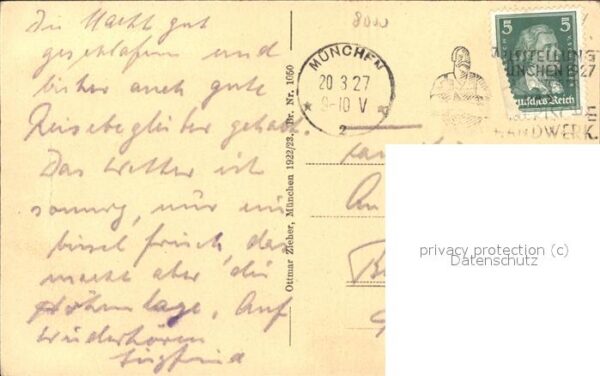 Die Nacht gut
geschlafen und
bisher auch gute
Reisebegleiter gehabt.
Das Wetter ist
sonnig, nur ein
bissel frisch, das
macht aber die
Höhenlage. Auf
Wiederhören
Siegfried
Ottmar Zieher, München 1922/23, Br. Nr. 1050
8000
MÜNCHEN
20 3 27
9-10 V
2
5 5
Deutsches Reich
AUSSTELLUNG
MÜNCHEN 1927
HANDWERK
An
privacy protection (c)
Datenschutz